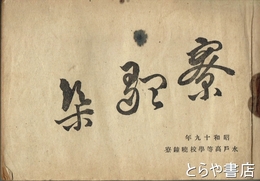 寮歌集
昭和十九年
水戸高等學校暁鐘寮
とらや書店